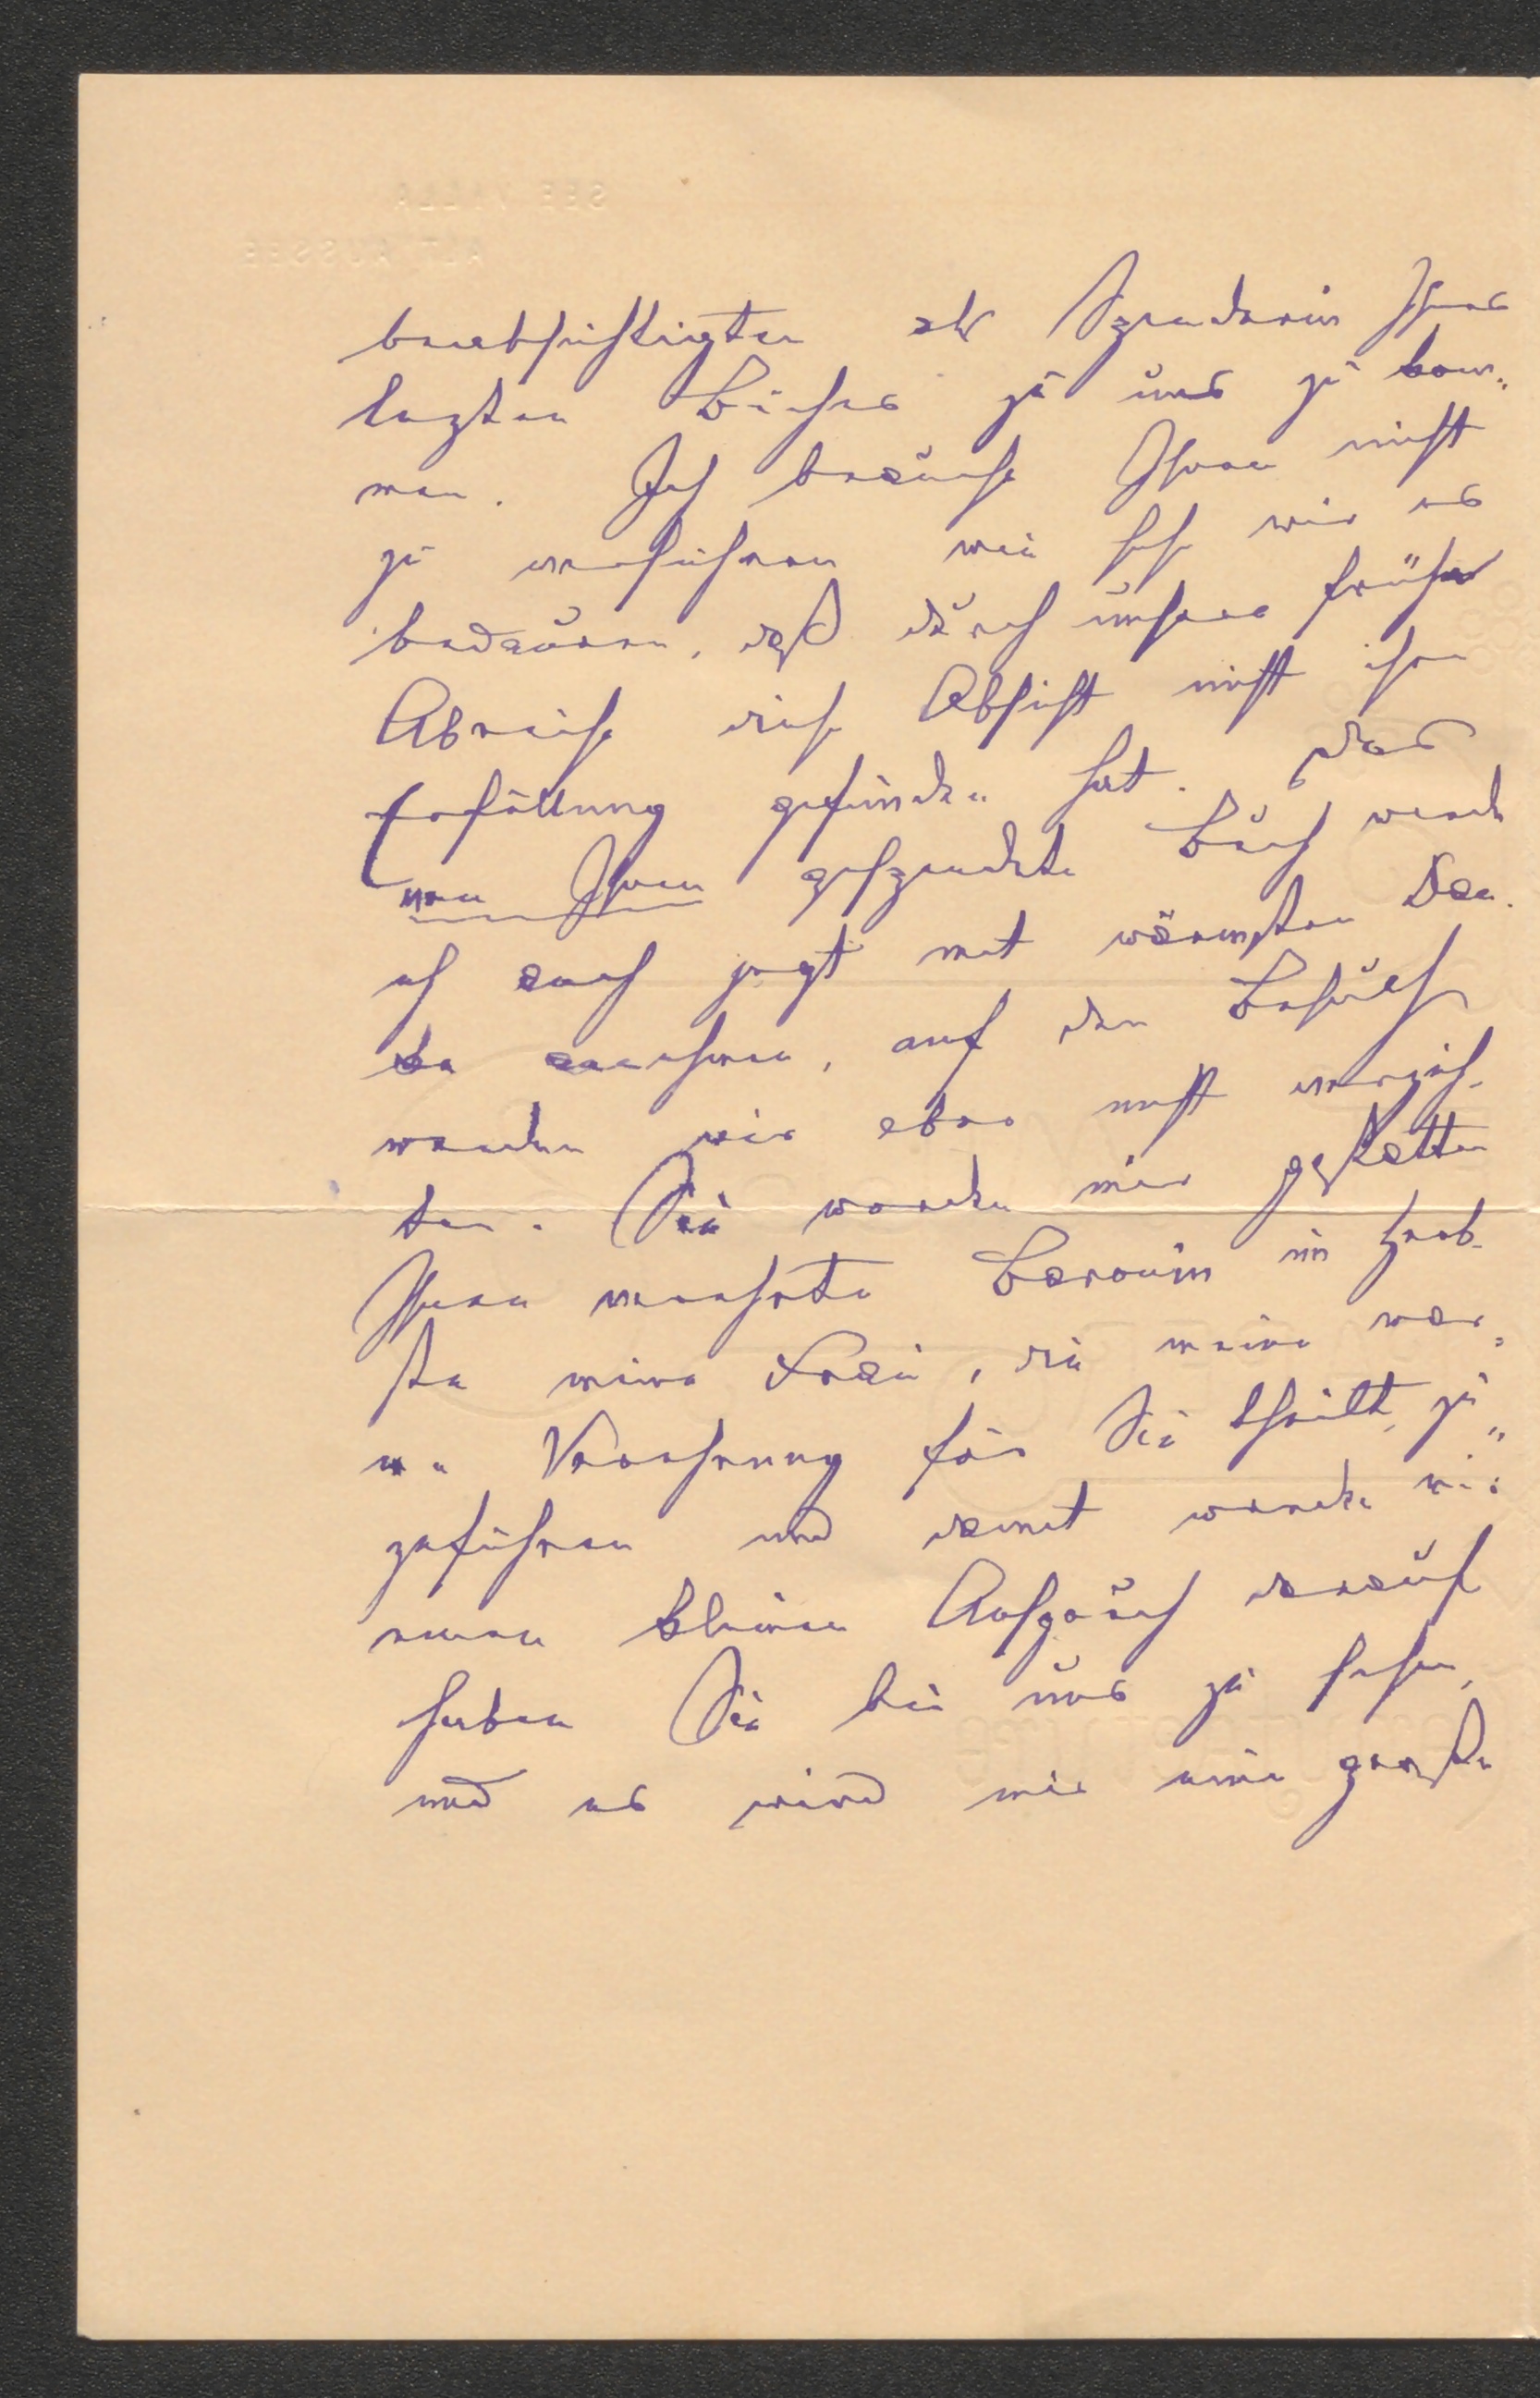 SEE VILLA
ALT AUSSEE
beabsichtigten als Spenderin Ihres
letzten Buches zu uns zu kom„
men. Ich brauche Ihnen nicht
zu versichern wie sehr wir es
bedauern, daß durch unsere frühe
Abreise diese Absicht nicht ihre
Erfüllung gefunden hat. Das
von Ihnen gespendete Buch werde
ich auch jetzt mit wärmstem Dan„
ke annehmen, auf den Besuch
werden wir aber nicht verzich„
ten. Sie werden mir gestatten
Ihnen verehrte Baronin im Herb„
ste meine Frau, die meine war„
me Verehrung für Sie theilt, zu„
zuführen und damit werde ich
einen kleinen Anspruch darauf
haben Sie bei uns zu sehen,
und es wird mir eine große